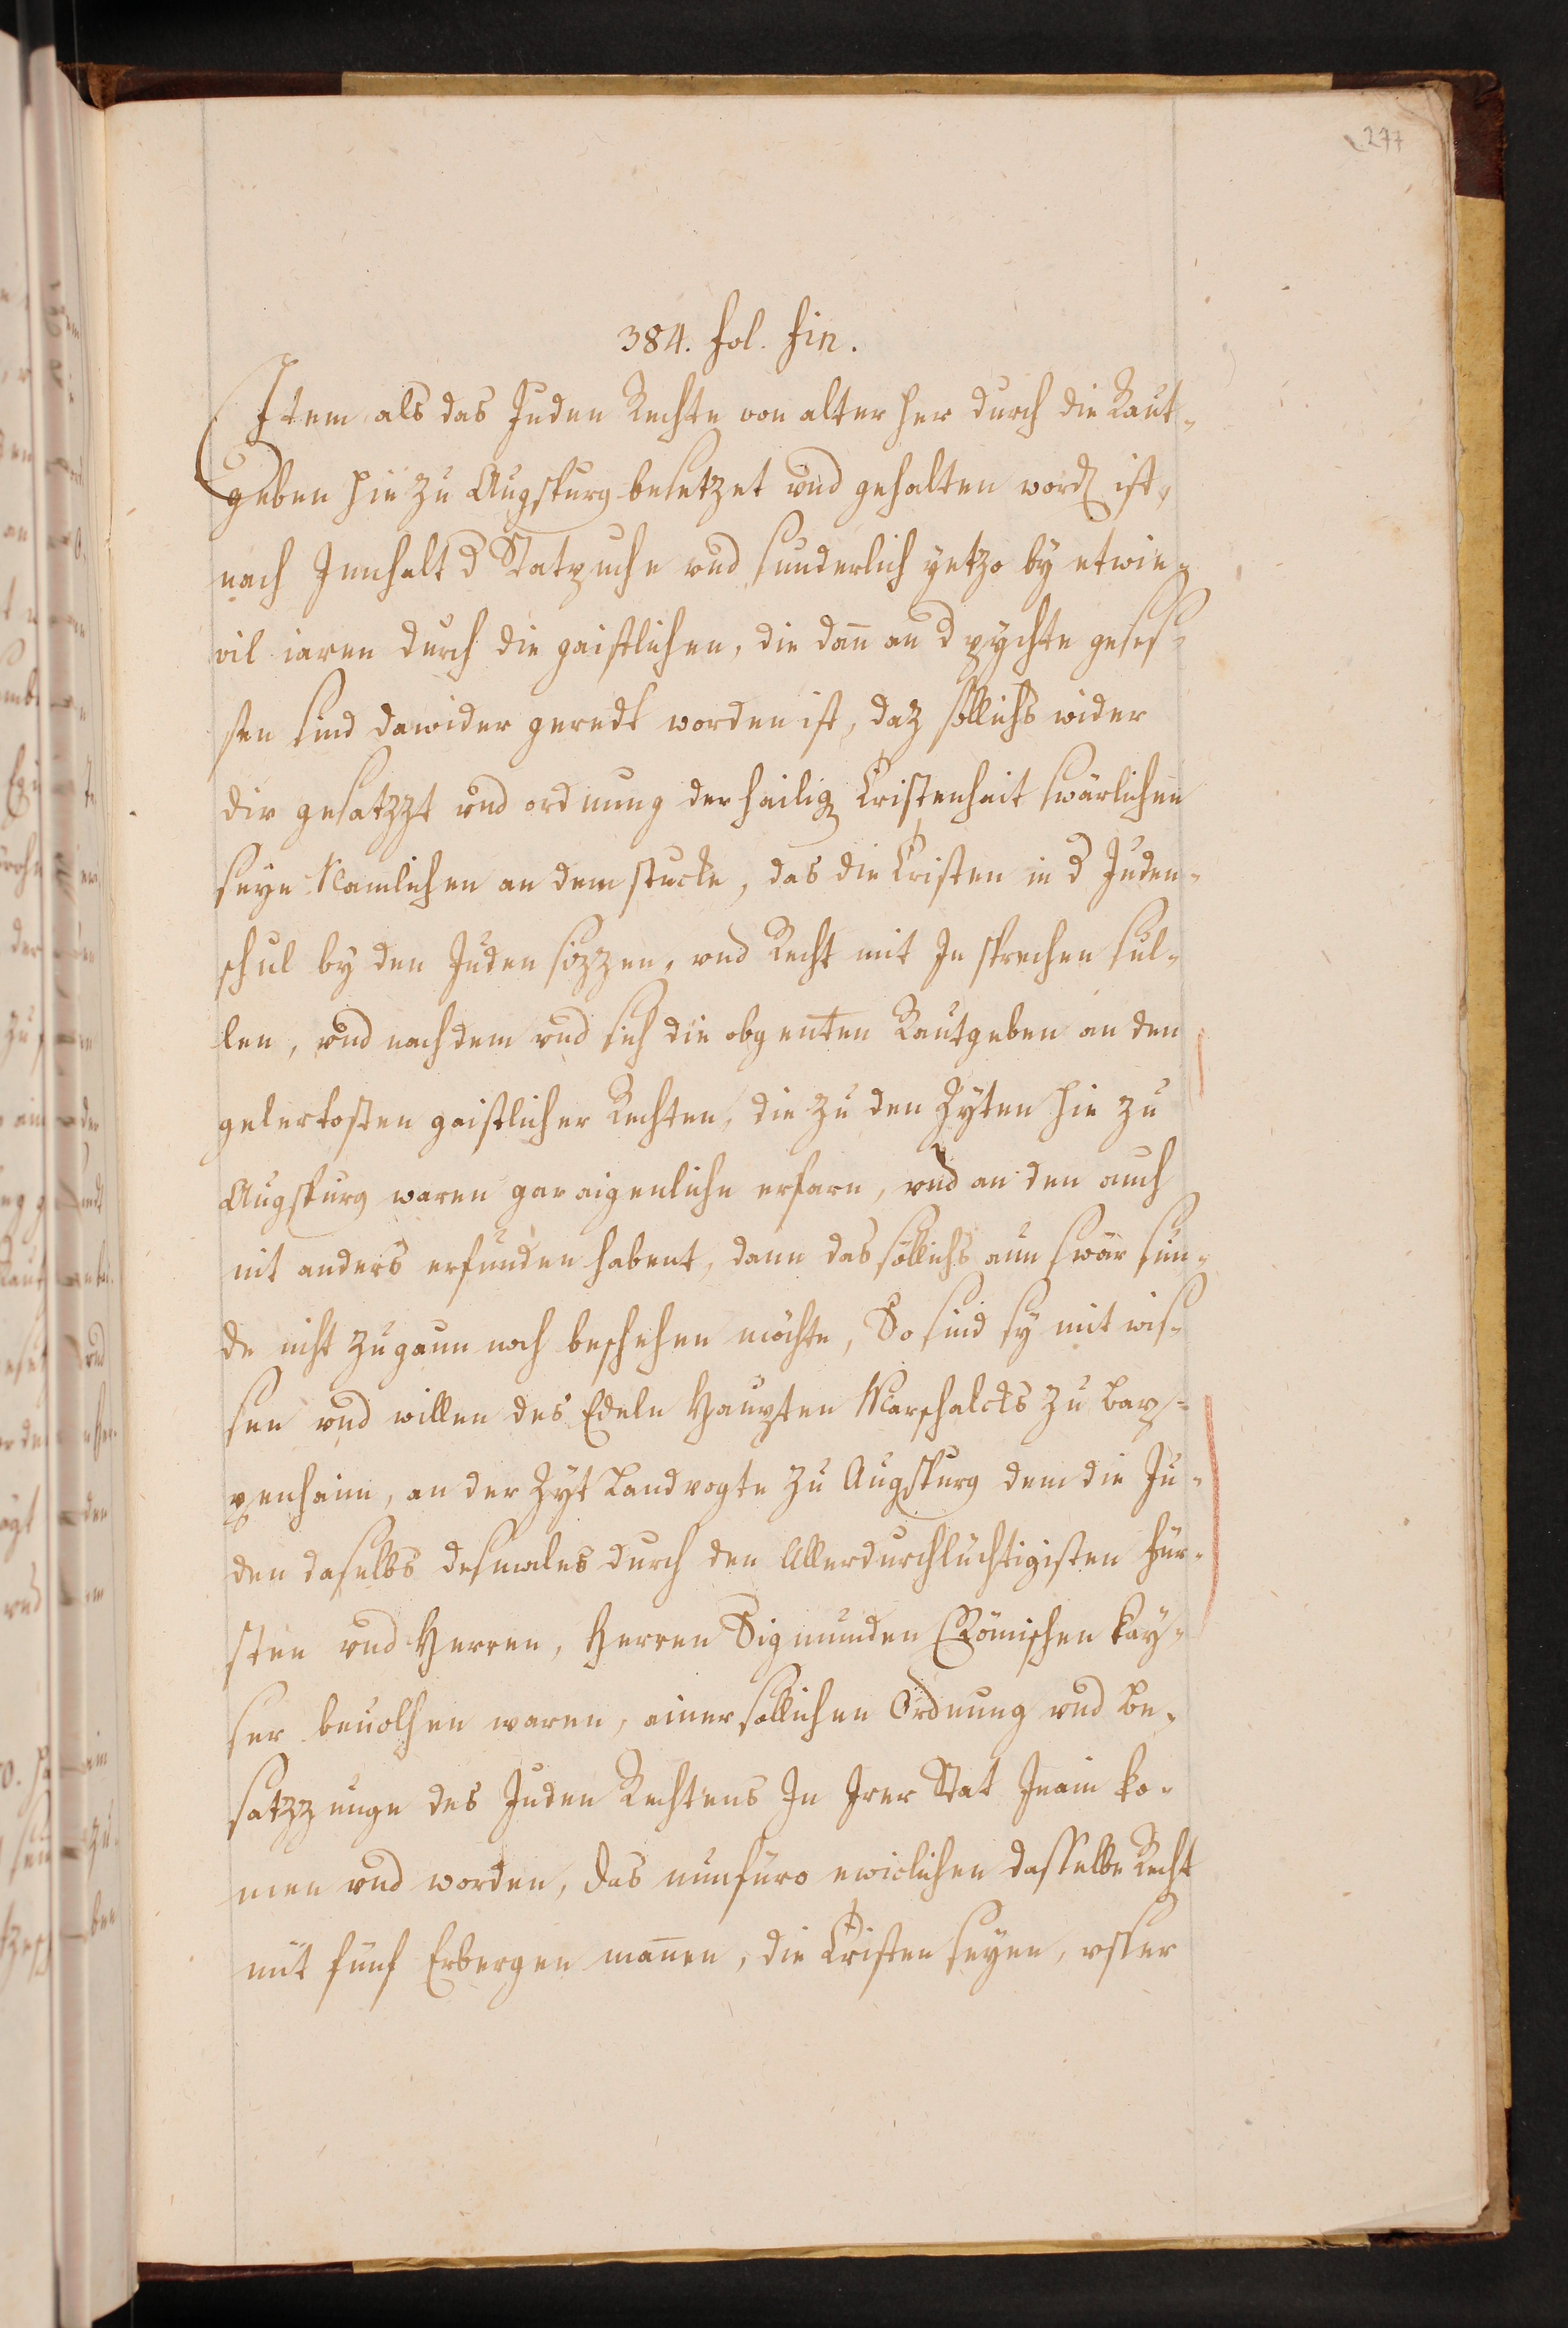 277
384. fol. fin.
Item als das Juden Rechte von alter her durch die Raut-
geben hie zu Augspurg besetzet und gehalten word ist,
nach Innhalt d Statpuche vnd sunderlich yetzo by etwie-
vil iaren durch die gaistlichen, die dan an d pychte geses-
sen sind dawider geredt worden ist, daz söllichs wider
die gesatzzt und ordnung der hailig Cristenhait swärlichen
seye Namlichen an dem stucke, das die Cristen in d Juden-
schul by den Juden sizzen, vnd Recht mit In sprechen sul-
len, und nach dem vnd sich die obgenten Rautgeben an den
gelertosten gaistlicher Rechten, die zu den Zyten hie zu
Augspurg waren gar aigenliche erfarn, vnd an den auch
nit anders erfunden habent, dann das söllichs aun swär sün-
de nicht zugaun noch beschehen möchte, So sind sy mit wis-
sen vnd willen des Edeln Haupten Marschalcks zu Bap-
penhaim, an der Zyt Landvogte zu Augspurg dem die Ju-
den daselbs desmales durch den Allerdurchlüchtigisten Für-
sten vnd Herren, Herren Sigmunden Römischen Kay-
ser beuolhen waren, ainer söllichen Ordnung vnd be-
satzzunge des Juden Rechtens In Irer Stat Inain ko-
men vnd worden, Das nunfüro ewiclichen dasselbe Recht
mit fünf Erbergen manen, die Cristen seyen, vsser